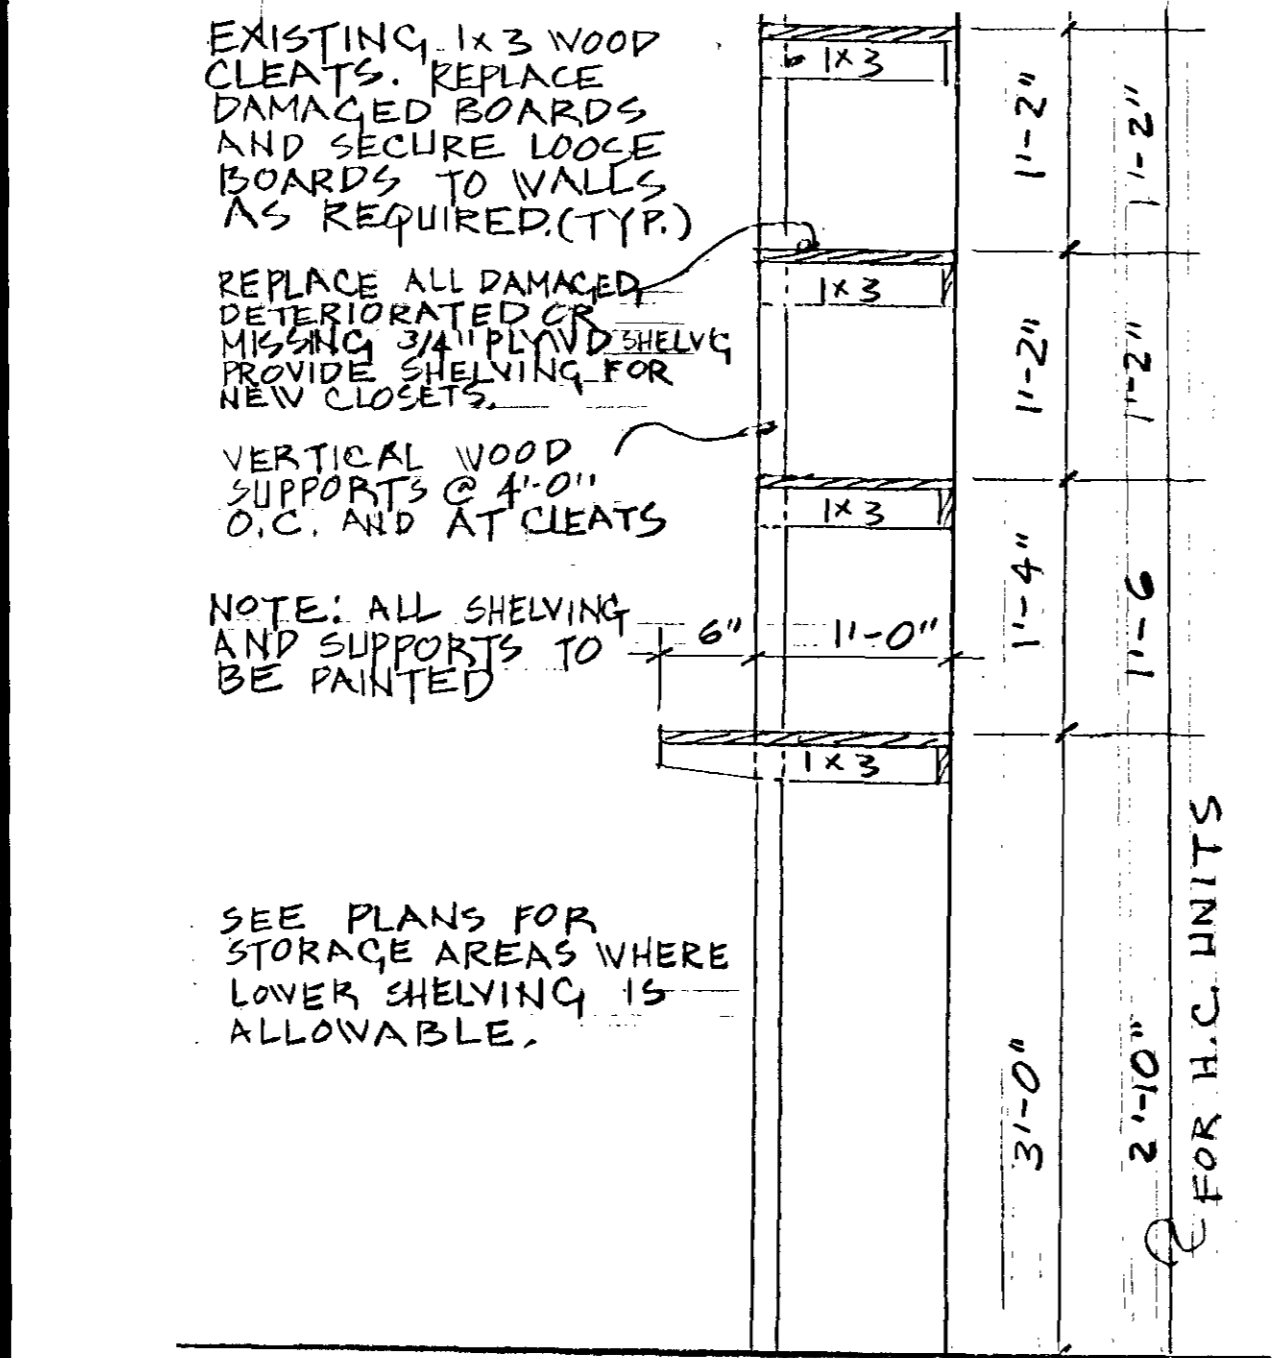 EXISTING 1x3 WOOD
CLEATS. REPLACE
DAMAGED BOARDS
AND SECURE LOOSE
BOARDS TO WALLS
AS REQUIRED.(TYP.)
REPLACE ALL DAMAGED,
DETERIORATED OR
MISSING 3/4" PLYWD SHELVG
PROVIDE SHELVING FOR
NEW CLOSETS.
VERTICAL WOOD
SUPPORTS @ 4'-0"
O.C. AND AT CLEATS
NOTE: ALL SHELVING
AND SUPPORTS TO
BE PAINTED
SEE PLANS FOR
STORAGE AREAS WHERE
LOWER SHELVING IS
ALLOWABLE.
1x3
1x3
1x3
6"
1'-0"
1x3
1'-2"
1'-2"
1'-4"
3'-0"
1'-2"
1'-2"
1'-6
2'-10"
FOR H.C. UNITS